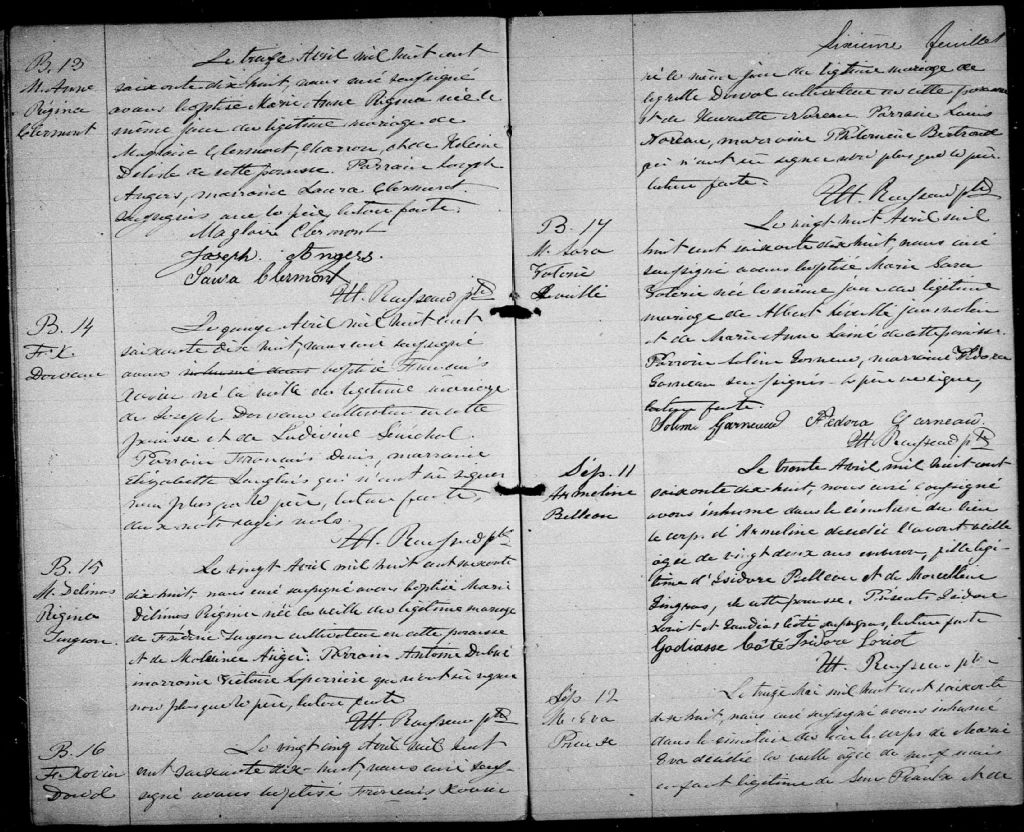 B. 13
M. Anne
Régina
Clermont
Le treize Avril mil huit cent
soixante dix huit, nous curé soussigné
avons baptisé Marie Anne Régina née le
même jour du légitime mariage de
Magloire Clermont, charron, et de Héléine
Delisle de cette paroisse. Parrain Joseph
Angers, marraine Laura Clermont.
soussignés, avec le père, lecture faite.
Magloire Clermont
Joseph Angers.
Laura Clermont
Ptre
B. 14
F. X.
Le quinze Avril mil huit cent
soixante dix huit, nous curé soussigné
avons baptisé François
Xavier né la veille du légitime mariage
de Joseph cultivateur en cette
paroisse et de Ludivine Sénéchal.
Parrain François Denis, marraine
Elizabeth Langlais qui n'ont su signer
non plus que le père, lecture faite,
deux mots rayés nuls.
Ptre
B. 15
M. Délimas
Régina
Le vingt Avril mil huit cent soixante
dix huit, nous curé soussigné avons baptisé Marie
Délimas Régina née la veille du légitime mariage
de Frédéric cultivateur en cette paroisse
et de Angers. Parrain Antoine Dubuc
marraine Victoire Laperrière qui n'ont su signer
non plus que le père, lecture faite
Ptre
B. 16
F. Xavier
Le vingt cinq Avril mil huit
cent soixante dix-huit, nous curé sous-
signé avons baptisé François Xavier
Sixième feuillet
né le même jour du légitime mariage de
cultivateur en cette paroisse
et de Henriette Noreau Parrain Louis
Noreau, marraine Philomène Bertrand
qui n'ont su signer non plus que le père
lecture faite.
Ptre
B. 17
M. Sara
Le vingt huit Avril mil
huit cent soixante dix huit, nous curé
soussigné avons baptisé Marie Sara
née le même jour du légitime
mariage de Albert journalier
et de Marie Anne de cette paroisse.
Parrain Garneau, marraine Fédora
Garneau soussignés le père ne signe,
lecture faite.
Garneau Fédora Garneau.
Ptre
Sép. 11
Armeline
Belleau
Le trente Avril mil huit cent
soixante dix-huit, nous curé soussigné
avons inhumé dans le cimetière du lieu
le corps d'Armeline décédée l'avant veille
agée de vingt deux ans environ, fille légi-
time d'Isidore Belleau et de Marcelline
Gingras, de cette paroisse. Présents Isidore
Loriot et Côté soussignés, lecture faite
Godiasse Côté Isidore Loriot
Ptre
Sép. 12
M. Eva
Le treize Mai mil huit cent soixante
dix huit, nous curé soussigné avons inhumé
dans le cimetière du lieu le corps de Marie
Eva décédée la veille agée de neuf mois
enfant légitime de et de